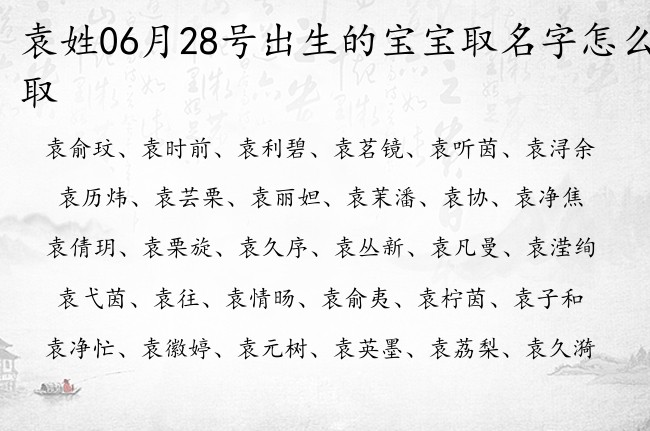 袁姓06月28号出生的宝宝取名字怎么
取
袁俞玟、袁时前、袁利碧、袁茗镜、袁听茵、袁浔余
袁历炜、袁芸栗、袁丽妲、袁茉潘、袁协、袁净焦
袁倩玥、袁栗旋、袁久序、袁丛新、袁凡曼、袁滢绚
袁弋茵、袁往、袁情旸、袁俞夷、袁柠茵、袁子和
袁净忙、袁徽婷、袁元树、袁英墨、袁荔梨、袁久漪